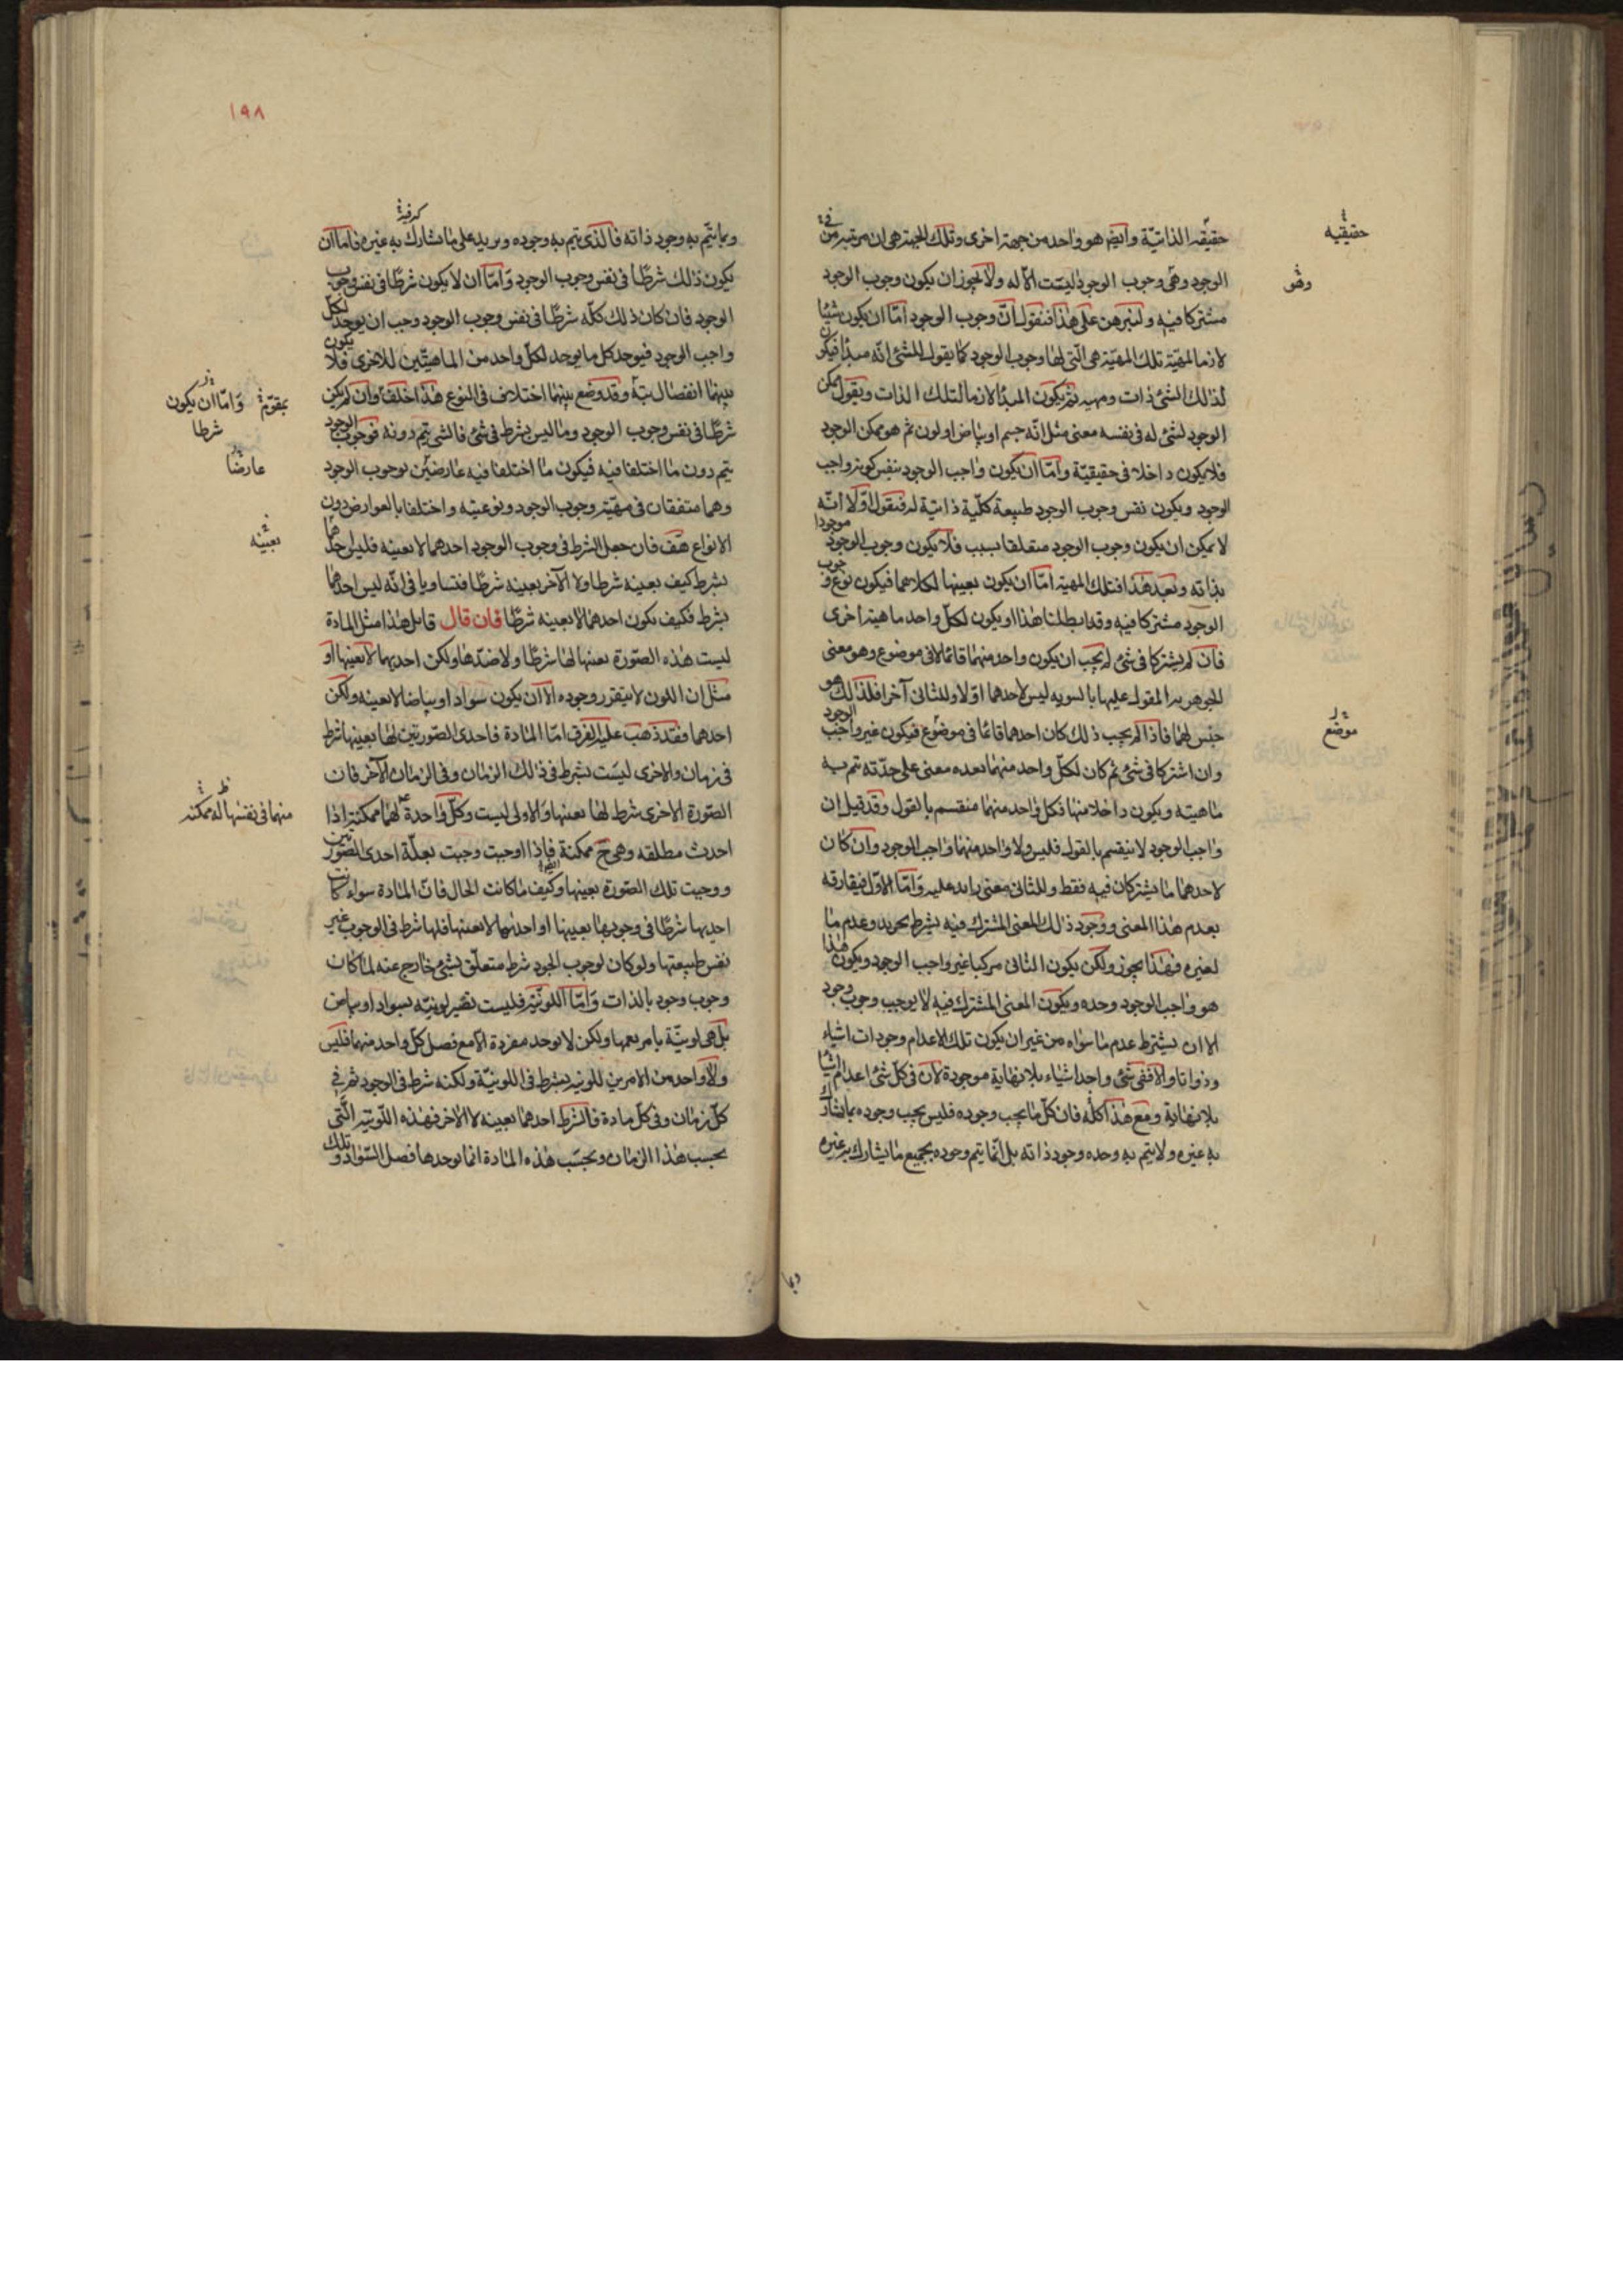 حقيقته الذاتية وايضا هو واحد من جهة اخرى وتلك الجهة هى ان مرتبته من
الوجود وهى وجوب الوجود ليست الا له ولا يجوز ان يكون وجوب الوجود
مشتركا فيه ولنبرهن على هذا فنقول ان وجوب الوجود اما ان يكون شيئا
لازما لمهية تلك المهية هى التى لها وجوب الوجود كما يقول للشئ انه مبدأ فيكون
لذلك الشئ ذات ومهية ثم يكون المبدأ لازما لتلك الذات ويقول ممكن
الوجود لشئ له فى نفسه معنى مثل انه جسم او بياض او لون ثم هو ممكن الوجود
فلا يكون داخلا فى حقيقيّة واما ان يكون واجب الوجود بنفس كونه واجب
الوجود ويكون نفس وجوب الوجود طبيعة كلّية ذاتية له فنقول اوّلا انّه
لا يمكن ان يكون وجوب الوجود متعلقا بسبب فلا يكون وجوب الوجود موجودا
بذاته وبعد هذا فتلك المهية اما ان يكون بعينها لكلاهما فيكون نوع وجوب
الوجود مشتركا فيه وقد ابطلنا هذا او يكون لكل واحد ماهية اخرى
فان لم يشتركا فى شئ لم يجب ان يكون واحد منهما قائما لا فى موضوع وهو معنى
الجوهرية المقول عليها بالسويه ليس لاحدهما اولا وللثانى آخرا فلذلك هو
جنس لهما فاذا لم يجب ذلك كان احدهما قائما فى موضوع فيكون غير واجب الوجود
وان اشتركا فى شئ ثم كان لكل واحد منهما بعده معنى على حدّته تتم به
ماهيته ويكون داخلا منها فكل واحد منهما منقسم بالقول وقد قيل ان
واجب الوجود لا ينقسم بالقول فليس ولا واحد منهما واجب الوجود وان كان
لاحدهما ما يشتركان فيه فقط وللثانى معنى زايد عليه واما الاول فيفارقه
بعدم هذا المعنى ووجود ذلك المعنى المشترك فيه بشرط تجريد وعدم ما
لغيره فهذا يجوز ولكن يكون الثانى مركبا غير واجب الوجود ويكون هذا
هو واجب الوجود وحده ويكون المعنى المشترك فيه لا يوجب وجوب وجود
الا ان يشترط عدم ما سواه من غير ان يكون تلك الاعدام وجودات اشياء
وذواتا والا ففى شئ واحد اشياء بلا نهاية موجودة لان فى كل شئ اعدام اشيا
بلا نهاية ومع هذا كله فان كل ما يجب وجوده فليس يجب وجوده بما يشارك
به غيره ولا يتم به وحده وجود ذاته بل انما يتم وجوده بجميع ما يشارك به غيره
حقيقيه
وهو
موضع
وبما
١٩٨
وبما يتم به وجود ذاته فالذى يتم به وجوده ويزيد على ما يشارك به غيره فاما ان
يكون ذلك شرطا فى نفس وجوب الوجود واما ان لا يكون شرطا فى نفس وجوب
الوجود فان كان ذلك كله شرطا فى نفس وجوب الوجود وجب ان يوجد لكل
واجب الوجود فيوجد كل ما يوجد لكل واحد من الماهيتين للاخرى فلا يكون
بينهما انفصال بتة وقد وضع بينهما اختلاف فى النوع هذا خلف وان لم يكن
شرطا فى نفس وجوب الوجود وما ليس بشرط فى شئ فالشئ يتم دونه فوجوب الوجود
يتم دون ما اختلفا فيه فيكون ما اختلفا فيه عارضين لوجوب الوجود
وهما متفقان فى مهية وجوب الوجود ونوعيته واختلفا بالعوارض دون
الانواع هف فان جعل الشرط فى وجوب الوجود احدهما لا بعينه فليس احدهما
بشرط كيف بعينه شرطا ولا الآخر بعينه شرطا فتساويا فى انه ليس احدهما
بشرط فكيف يكون احدهما لا بعينه شرطا فان قال قايل هذا مثل المادة
ليست هذه الصورة بعينها لها شرطا ولا ضدها ولكن احديهما لا بعينها او
مثل ان اللون لا يتقرر وجوده الا ان يكون سوادا او بياضا لا بعينه ولكن
احدهما فقد ذهب عليه الفرق اما المادة فاحدى الصورتين لها بعينها شرط
فى زمان والاخرى ليست بشرط فى ذلك الزمان وفى الزمان الآخر فان
الصورة الاخرى شرط لها بعينها والاولى ليست وكل واحدة لهما ممكنة اذا
احدث مطلقه وهى ح ممكنة فاذا اوجبت وجبت بعلة احدى الصورتين
ووجبت تلك الصورة بعينها وكيف ما كانت الحال فان المادة سواء كانت
احديها شرطا فى وجودها بعينها او احديهما لا بعينها فلها شرط فى الوجوب غير
نفس طبيعتها ولو كان لوجوب الوجود شرط متعلق بشئ خارج عنه لما كان
وجوب وجود بالذات واما اللونية فليست تصير لونية بسواد او بياض
بل هى لونية بامر يعمها ولكن لا توجد مفردة الا مع فصل كل واحد منهما فليس
ولا واحد من الامرين للونية بشرط فى اللونية ولكنه شرط فى الوجود ثم فى
كل زمان وفى كل مادة فالشرط احدهما بعينه لا الآخر فهذه اللونية التى
بحسب هذا الزمان وبحسب هذه المادة انما يوجدها فصل السواد وتلك
بمقوم واما ان يكون
شرطا
عارضا
بعينه
منهما فى نفسها له ممكنة